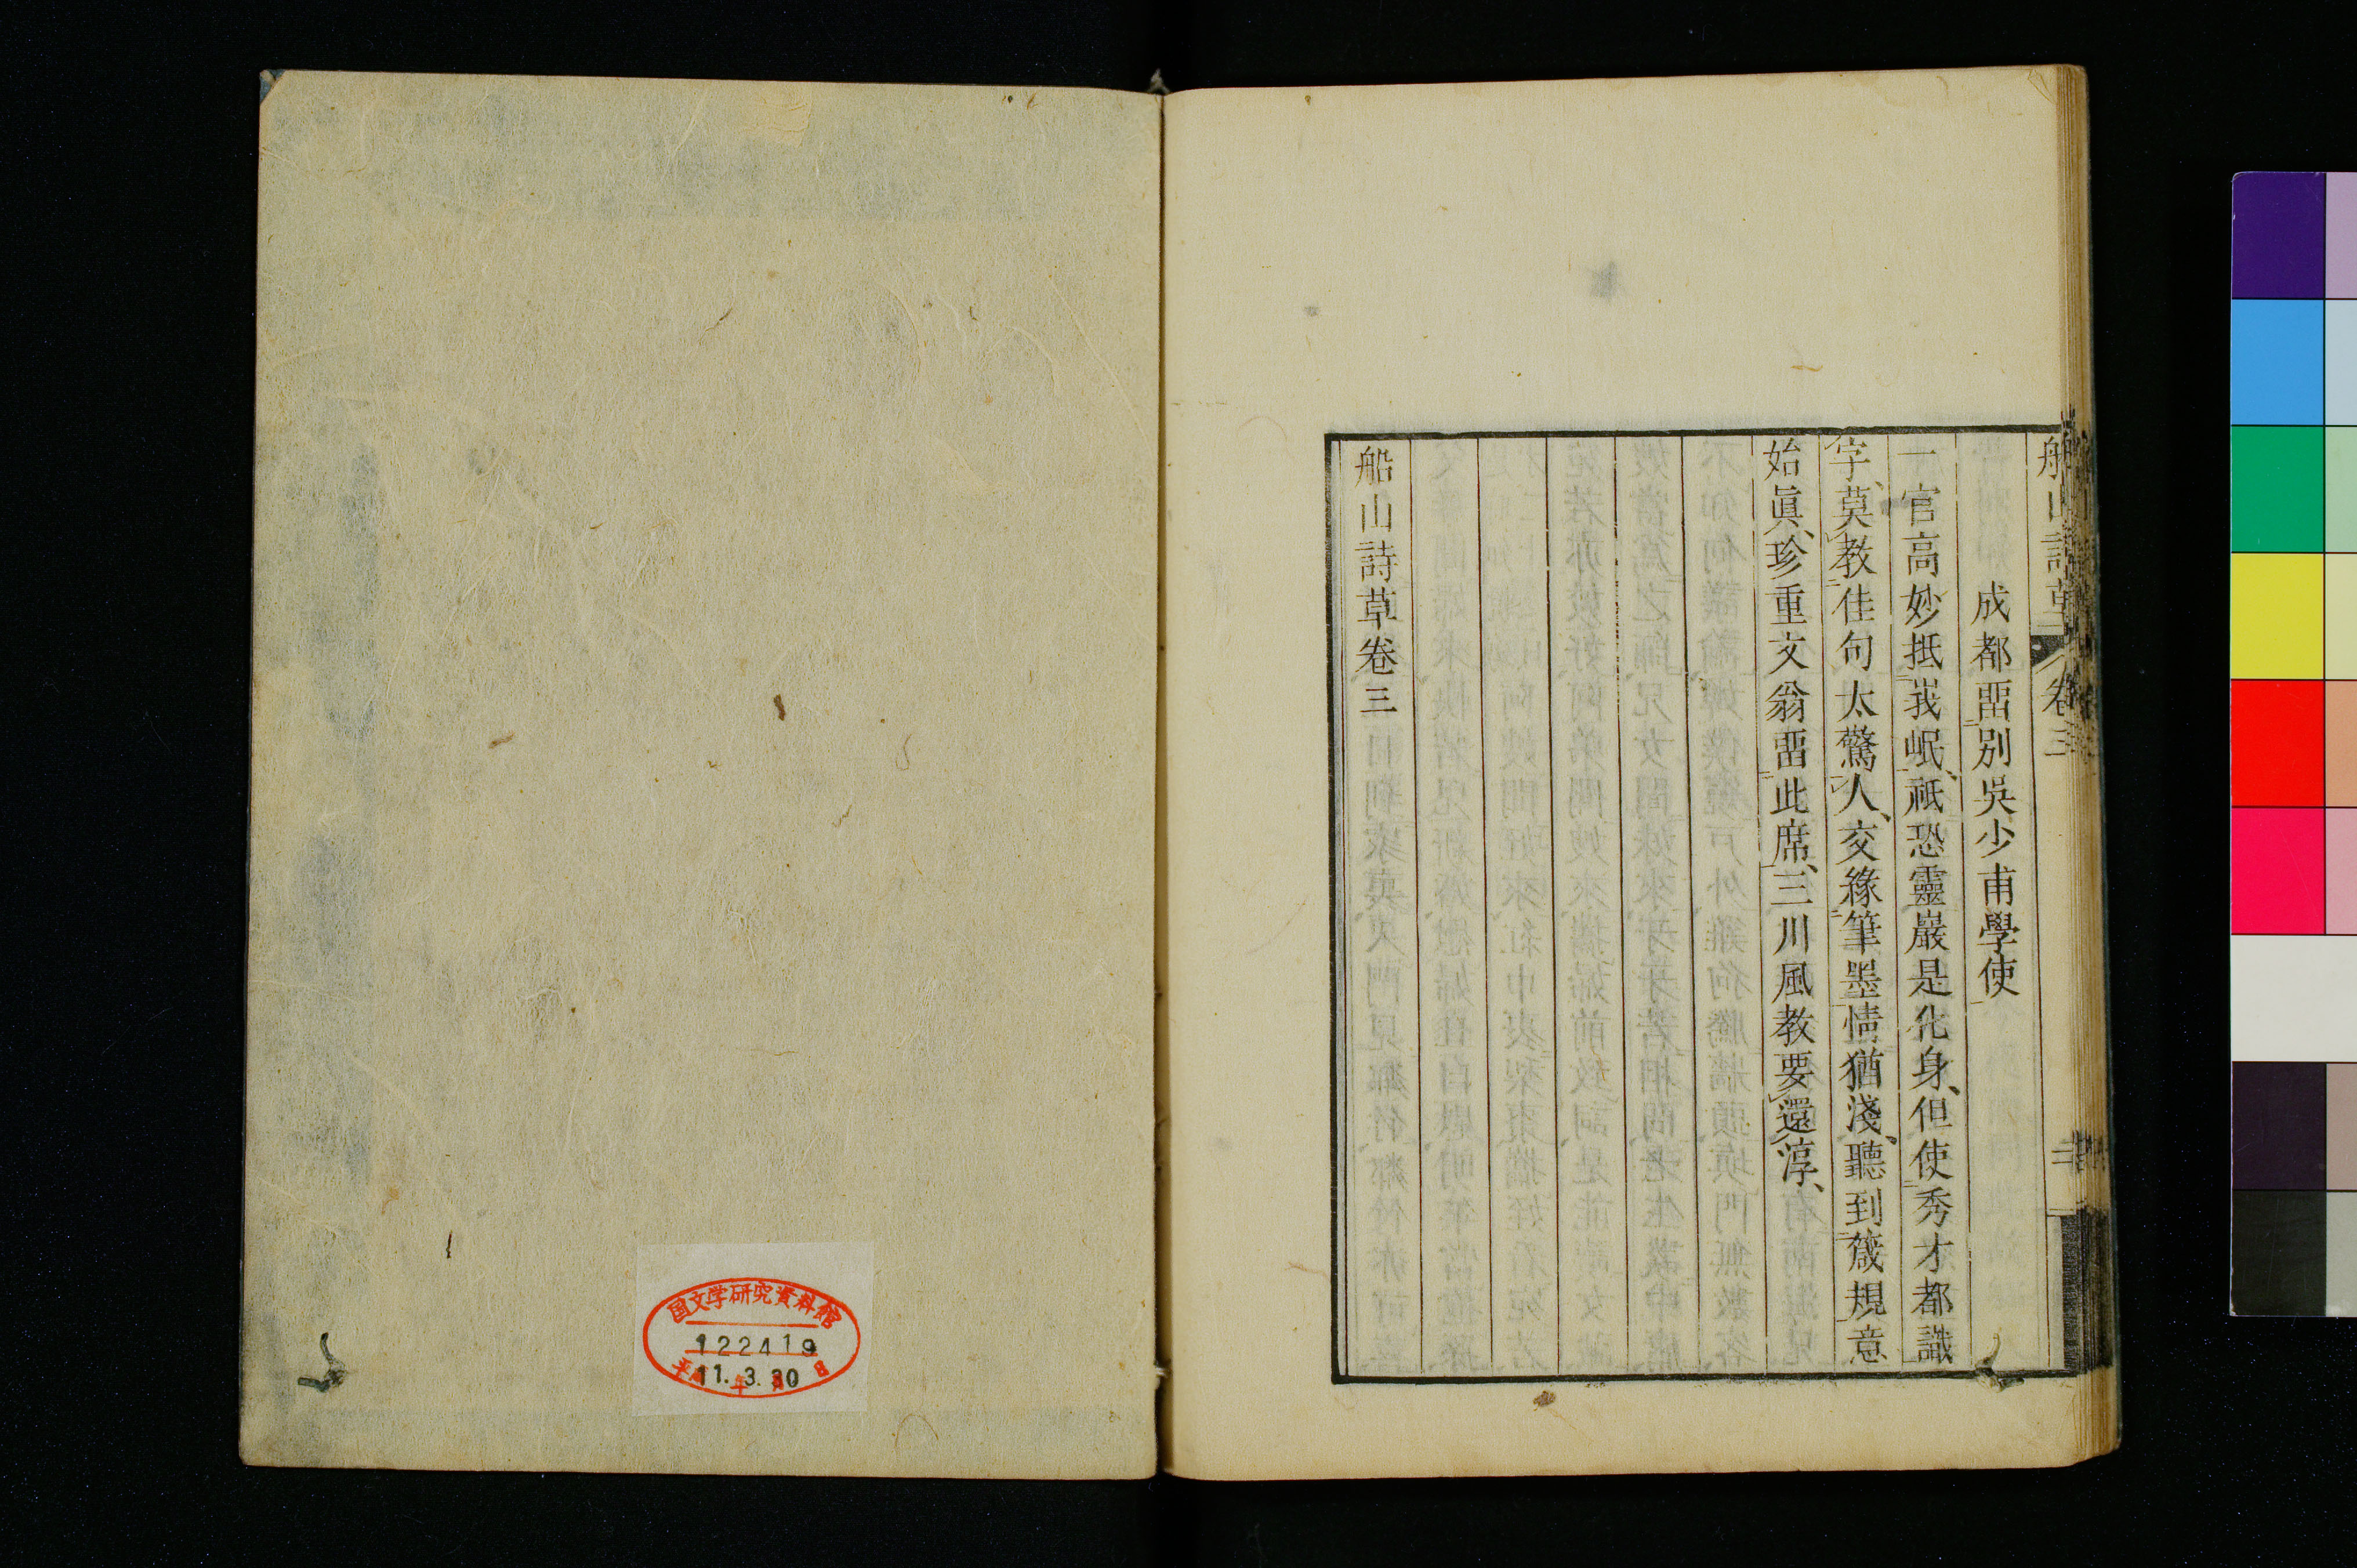 船山詩草 卷三
成都畱別吳少甫學使
一官高妙抵峩岷祗恐靈巖是化身但使秀才都識
字莫教佳句太驚人交緣筆墨情猶淺聽到箴規意
始眞珍重文翁畱此席三川風教要還淳
船山詩草卷三
国文学研究資料館
122419
平成11年3月30日